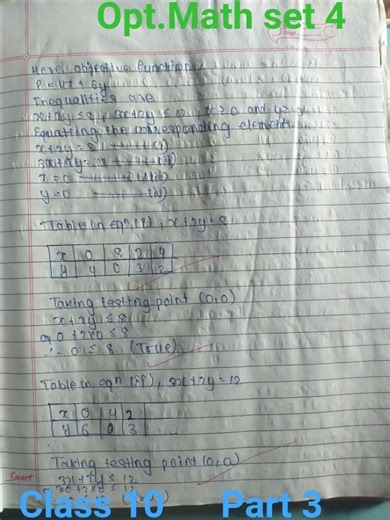 Opt.Math set 4
Here, objective function
P = 4x + 6y
Inequalities are
x+2y ≤ 8, 3x+2y ≤ 12, x ≥ 0 and y ≥
Equating the corresponding elements.
x+2y = 8
3x+2y =
x = 0
y = 0
Table in eqn (i), x+2y = 8
x 0 8 2 4
y 4 0 3 2
Taking testing point (0,0)
x+2y ≤ 8
or 0+2×0 ≤ 8
∴ 0 ≤ 8 (True)
Table in eqn (ii), 3x+2y = 12
x 0 4 2
y 6 0 3
Taking testing point (0,0)
3x+2y ≤ 12
Class 10 Part 3